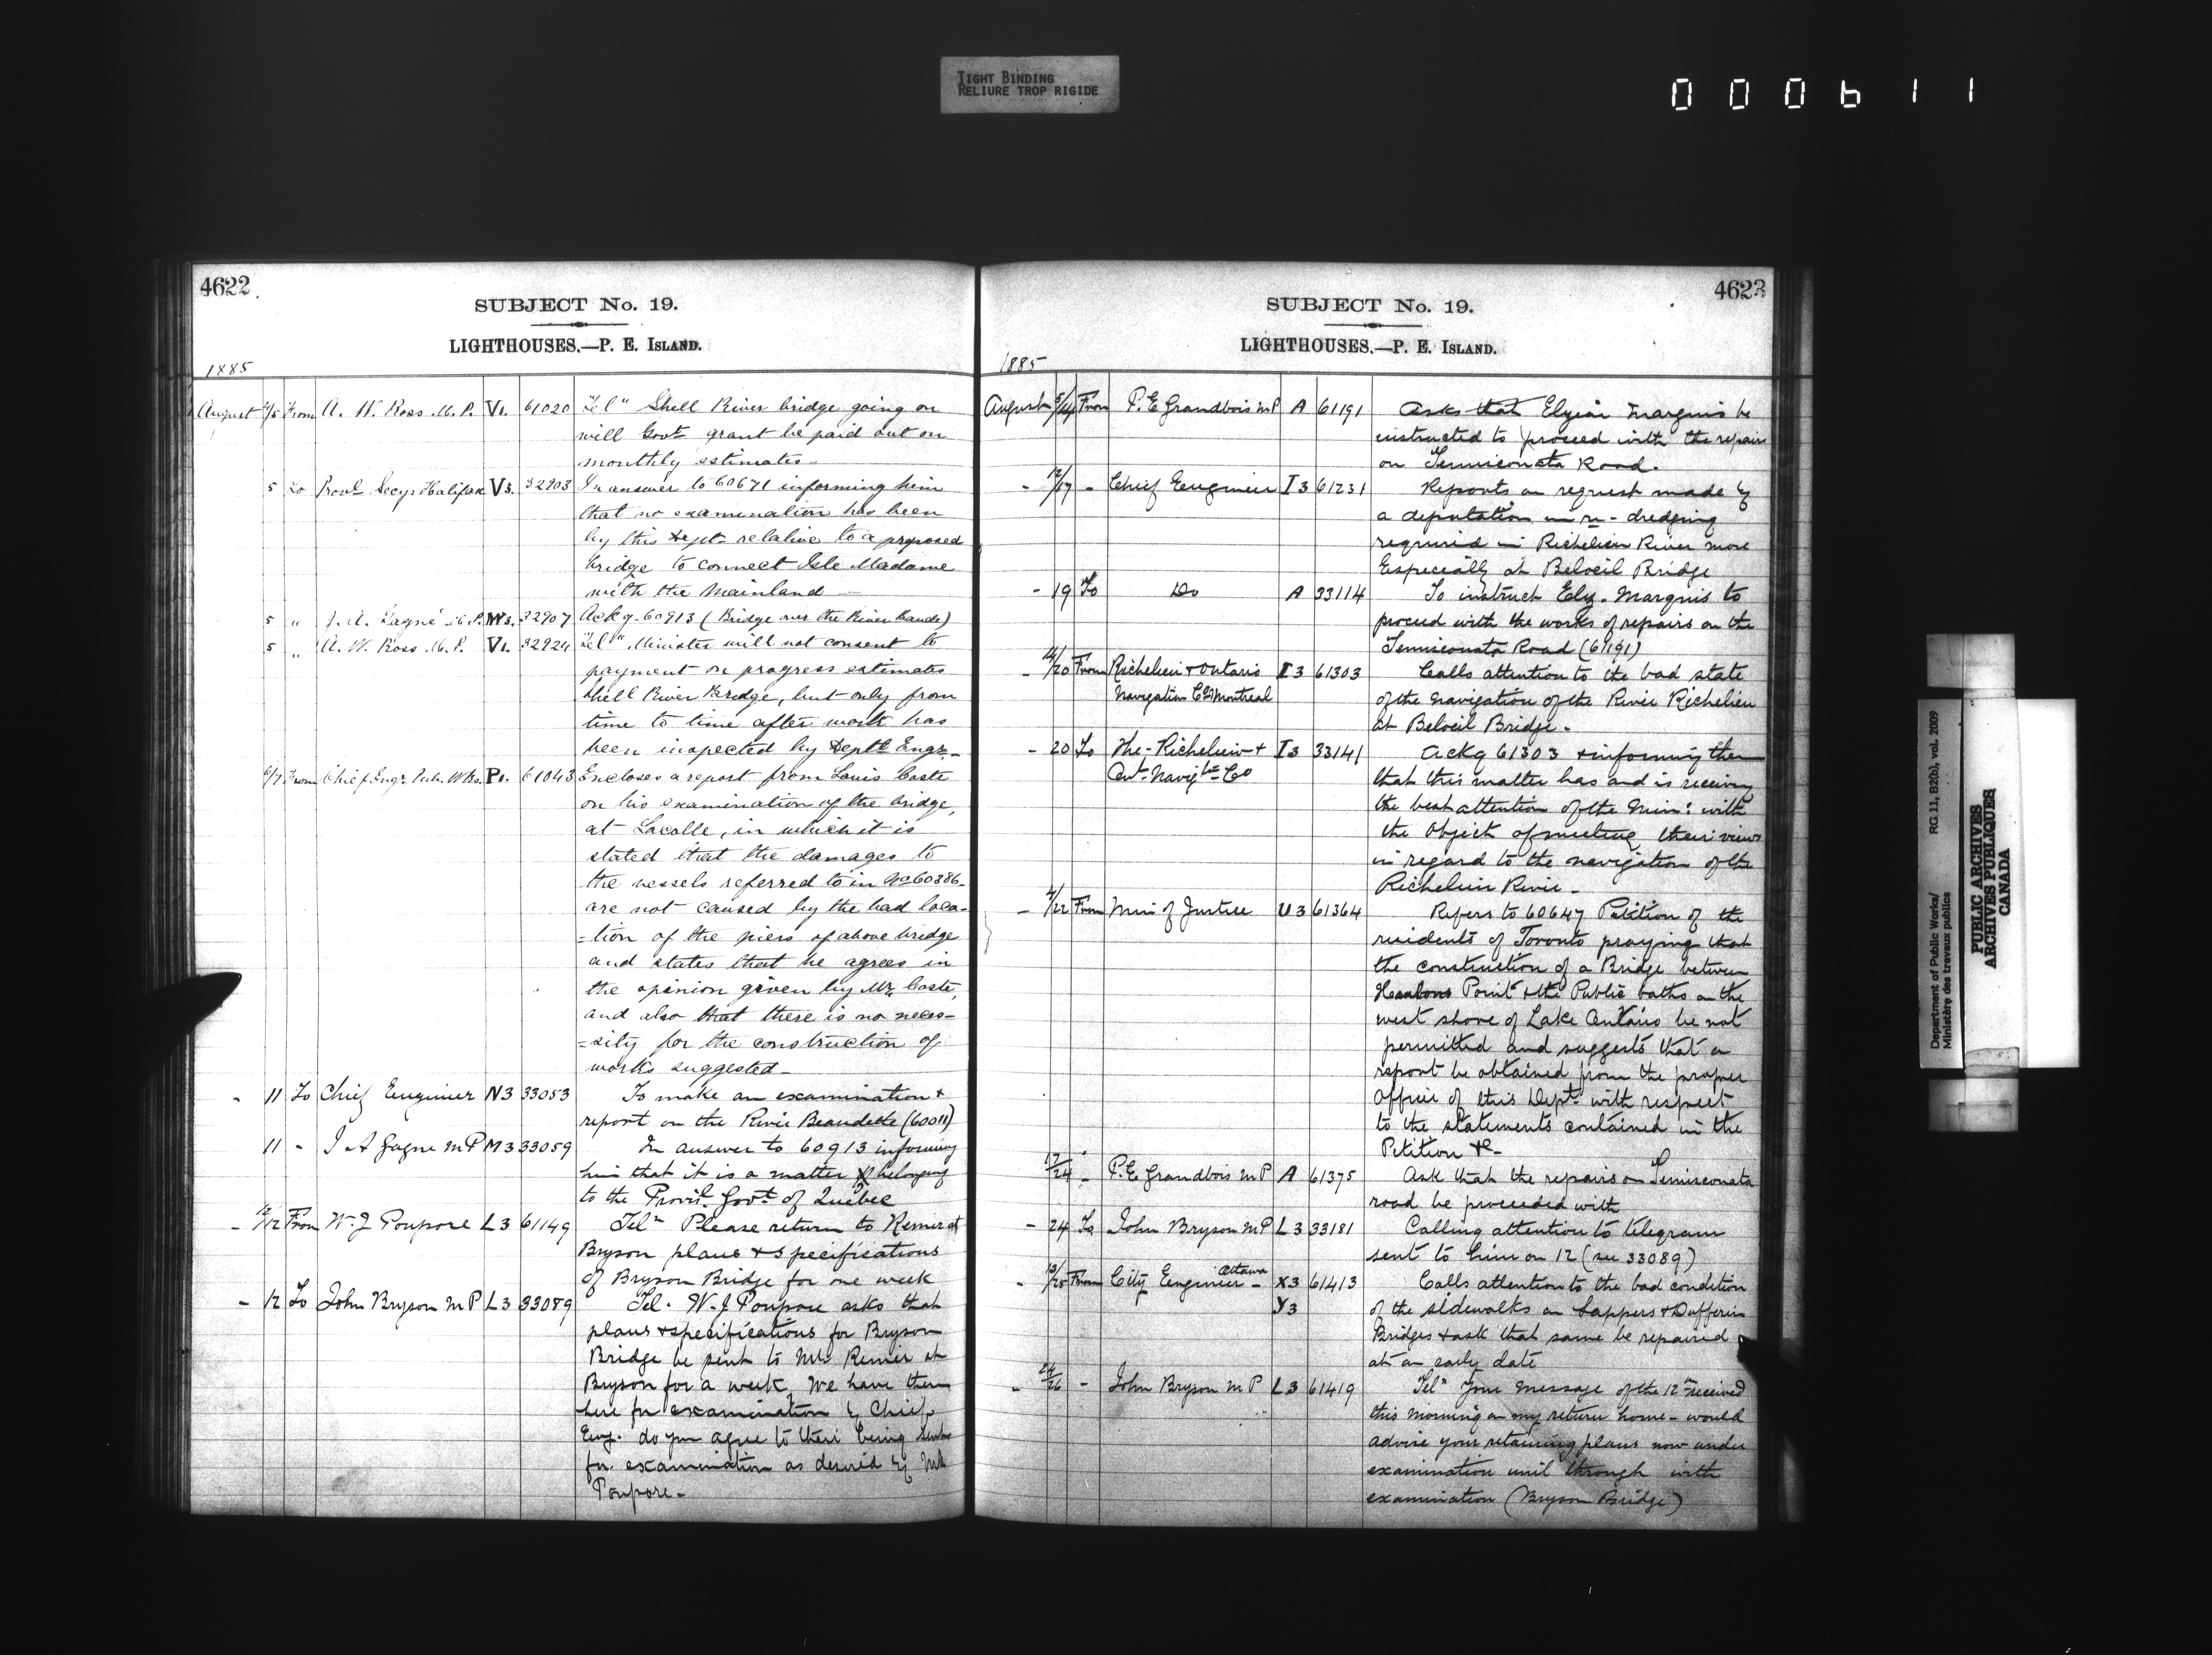 TIGHT BINDING
RELIURE TROP RIGIDE
000611
4622
SUBJECT No. 19.
LIGHTHOUSES.—P. E. ISLAND.
1885
August 4/5 From A. W. Ross M.P. V1. 61020 Tel" Shell River bridge going on
will Govt grant be paid out on
monthly estimates-
5 To Provl Secy Halifax V3. 32903 In answer to 60671 informing him
that no examination has been
by this Dept. relative to a proposed
bridge to connect Isle Madame
with the Mainland
5 " J. A. Gagné M.P. 32907 Ackg 60913 (Bridge over the River
5 " A. W. Ross M.P. V1. 32924 Tel" Minister will not consent to
payment on progress estimates
Shell River Bridge, but only from
time to time after work has
been inspected by Deptl Engr.-
6/7 From Chief Engr. Pub. Wks. P1. 61043 Encloses a report from Louis Coste
on his examination of the bridge,
at Lacolle, in which it is
stated that the damages to
the vessels referred to in No 60386-
are not caused by the bad loca-
=tion of the piers of above bridge
and states that he agrees in
the opinion given by Mr. Coste,
and also that there is no neces-
=sity for the construction of
works suggested-
- 11 To Chief Engineer N3 33053 To make an examination +
report on the River Beaudette (60011)
11 - J A Gagne MP M3 33059 In answer to 60913 informing
him that it is a matter belonging
to the Provil. Govt of Quebec
- 12/12 From W. J Poupore L3 61149 Tel" Please return to Renier at
Bryson plans + specifications
of Bryson Bridge for one week
- 12 To John Bryson MP L3 33089 Tel. W. J Poupore asks that
plans + specifications for Bryson
Bridge be sent to Mr. Renier at
Bryson for a week, We have them
here for examination by Chief
Eng. do you agree to their being sent
for examination as desired by Mr
Poupore-
4623
SUBJECT No. 19.
LIGHTHOUSES.—P. E. ISLAND.
1885
August 5/14 From P. E Grandbois MP A 61191 Asks that Elzéar Marquis be
instructed to proceed with the repairs
on Temiscouata Road.
- 12/17 - Chief Engineer I3 61231 Reports on request made by
a deputation in re- dredging
required in Richelieu River more
Especially at Beloeil Bridge
- 19 To Do A 33114 To instruct Elz. Marquis to
proceed with the works of repairs on the
Temiscouata Road (61191)
- /20 From Richelieu + Ontario I3 61303 Calls attention to the bad state
Navigation Co Montreal of the navigation of the River Richelieu
at Beloeil Bridge.
- 20 To The Richelieu + I3 33141 Ackg 61303 + informing them
Ont. Navigtn Co that this matter has and is receiving
the best attention of the Min: with
the Object of meeting their views
in regard to the navigation of the
Richelieu River-
- /22 From Min of Justice U3 61364 Refers to 60647 Petition of the
residents of Toronto praying that
the construction of a Bridge between
Point + the Public baths on the
west shore of Lake Ontario be not
permitted and suggests that a
report be obtained from the proper
Officer of this Dept. with respect
to the statements contained in the
Petition &c-
17/24 - P. E Grandbois MP A 61375 Ask that the repairs on Temiscouata
road be proceeded with
- 24 To John Bryson MP L3 33181 Calling attention to telegram
sent to him on 12 (see 33089)
- /25 From City Engineer Ottawa - X3 61413 Calls attention to the bad condition
Y3 of the sidewalks on Sappers + Dufferin
Bridges + ask that same be repaired
at an early date
- 24/26 - John Bryson MP L3 61419 Tel" Your message of the 12th received
this morning on my return home - would
advise your retaining plans now under
examination until through with
examination (Bryson Bridge)
Department of Public Works/
Ministère des travaux publics
RG 11, B2(b), vol. 2009
PUBLIC ARCHIVES
ARCHIVES PUBLIQUES
CANADA